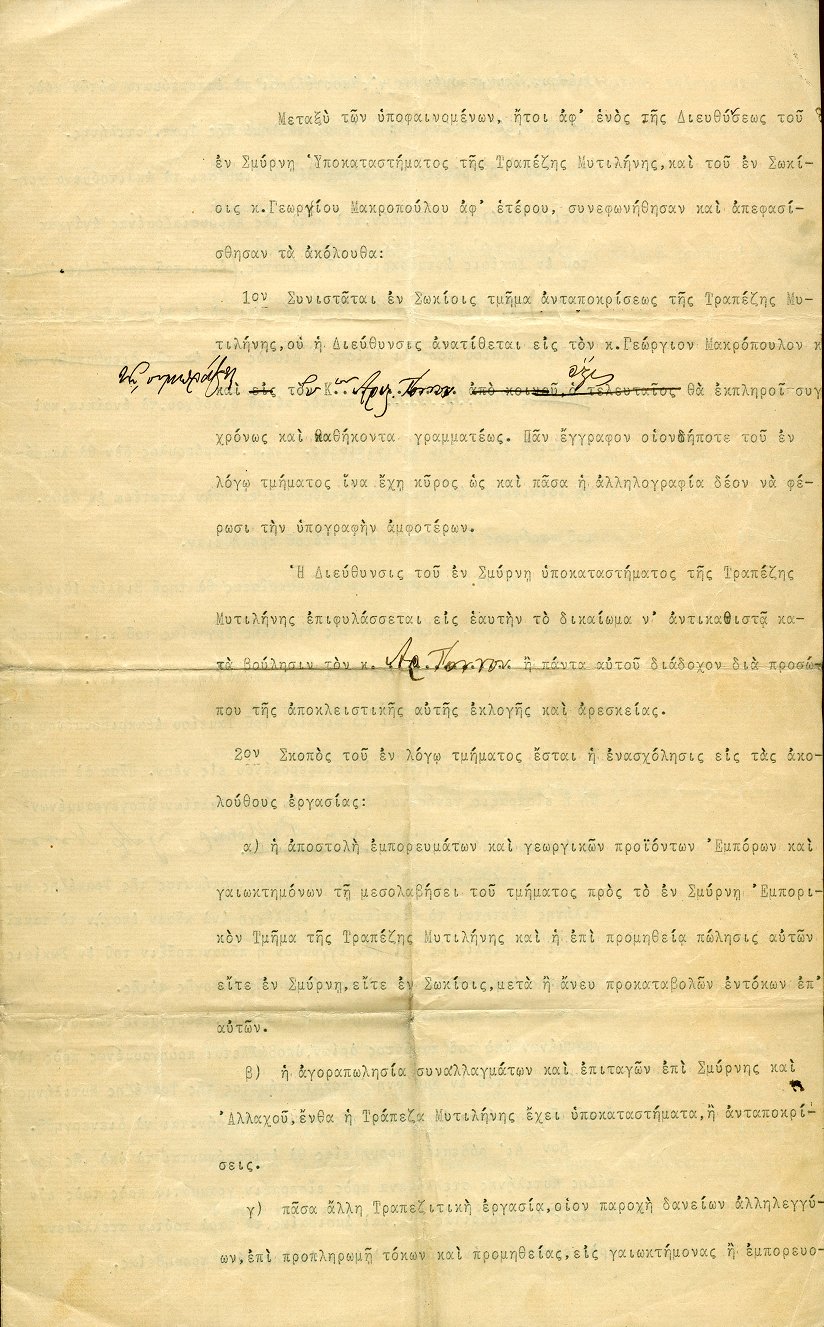 Μεταξὺ τῶν ὑποφαινομένων, ἤτοι ἀφ' ἑνὸς τῆς Διευθύσεως τοῦ
ἐν Σμύρνῃ Ὑποκαταστήματος τῆς Τραπέζης Μυτιλήνης,καὶ τοῦ ἐν Σωκί-
οις κ.Γεωργίου Μακροπούλου ἀφ' ἑτέρου, συνεφωνήθησαν καὶ ἀπεφασί-
σθησαν τὰ ἀκόλουθα:
1ον Συνιστᾶται ἐν Σωκίοις τμῆμα ἀνταποκρίσεως τῆς Τραπέζης Μυ-
τιλήνης,οὗ ἡ Διεύθυνσις ἀνατίθεται εἰς τὸν κ.Γεώργιον Μακρόπουλον κ
καὶ εἰς τὸν Κ. ἀπὸ κοινοῦ,ὁ τελευταῖος θὰ ἐκπληροῖ συγ
χρόνως καὶ καθήκοντα γραμματέως. Πᾶν ἔγγραφον οἱονδήποτε τοῦ ἐν
λόγῳ τμήματος ἵνα ἔχῃ κῦρος ὡς καὶ πᾶσα ἡ ἀλληλογραφία δέον νὰ φέ-
ρωσι τὴν ὑπογραφὴν ἀμφοτέρων.
Ἡ Διεύθυνσις τοῦ ἐν Σμύρνῃ ὑποκαταστήματος τῆς Τραπέζης
Μυτιλήνης ἐπιφυλάσσεται εἰς ἑαυτὴν τὸ δικαίωμα ν' ἀντικαθιστᾷ κα-
τὰ βούλησιν τὸν κ. ἢ πάντα αὐτοῦ διάδοχον διὰ προσώπ
που τῆς ἀποκλειστικῆς αὐτῆς ἐκλογῆς καὶ ἀρεσκείας.
2ον Σκοπὸς τοῦ ἐν λόγῳ τμήματος ἔσται ἡ ἐνασχόλησις εἰς τὰς ἀκο-
λούθους ἐργασίας:
α) ἡ ἀποστολὴ ἐμπορευμάτων καὶ γεωργικῶν προϊόντων Ἐμπόρων καὶ
γαιωκτημόνων τῇ μεσολαβήσει τοῦ τμήματος πρὸς τὸ ἐν Σμύρνῃ Ἐμπορι-
κὸν Τμῆμα τῆς Τραπέζης Μυτιλήνης καὶ ἡ ἐπὶ προμηθείᾳ πώλησις αὐτῶν
εἴτε ἐν Σμύρνῃ,εἴτε ἐν Σωκίοις,μετὰ ἢ ἄνευ προκαταβολῶν ἐντόκων ἐπ'
αὐτῶν.
β) ἡ ἀγοραπωλησία συναλλαγμάτων καὶ ἐπιταγῶν ἐπὶ Σμύρνης καὶ
Ἀλλαχοῦ,ἔνθα ἡ Τράπεζα Μυτιλήνης ἔχει ὑποκαταστήματα,ἢ ἀνταποκρί-
σεις.
γ) πᾶσα ἄλλη Τραπεζιτικὴ ἐργασία,οἷον παροχὴ δανείων ἀλληλεγγύ-
ων,ἐπὶ προπληρωμῇ τόκων καὶ προμηθείας,εἰς γαιωκτήμονας ἢ ἐμπορευο-